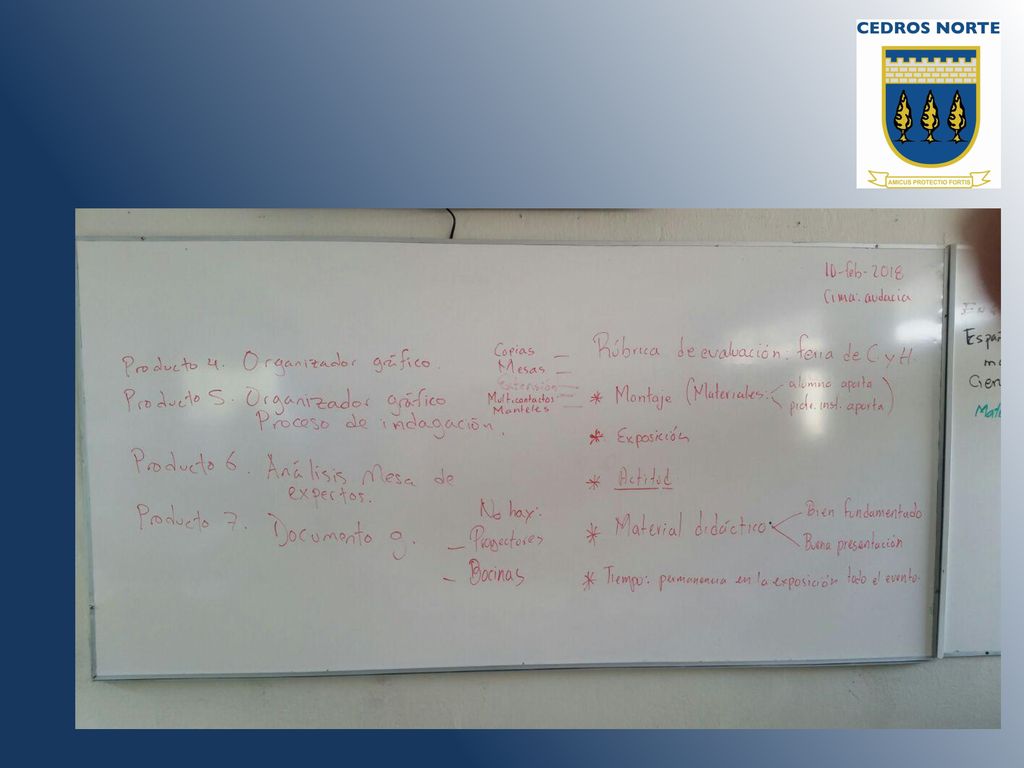 CEDROS NORTE
AMICUS PROTECTIO FORTIS
10-feb-2018
Cima: audacia
Producto 4. Organizador gráfico.
Producto 5. Organizador gráfico
Proceso de indagación.
Producto 6. Análisis Mesa de
expertos.
Producto 7. Documento g.
Copias —
Mesas —
Extensión —
Multicontactos —
Manteles —
No hay:
— Proyectores
— Bocinas
Rúbrica de evaluación: feria de C y H.
* Montaje (Materiales: alumno aporta
profr. inst. aporta)
* Exposición
* Actitud
* Material didáctico: Bien fundamentado
Buena presentación
* Tiempo: permanencia en la exposición todo el evento.
Españ
Cien